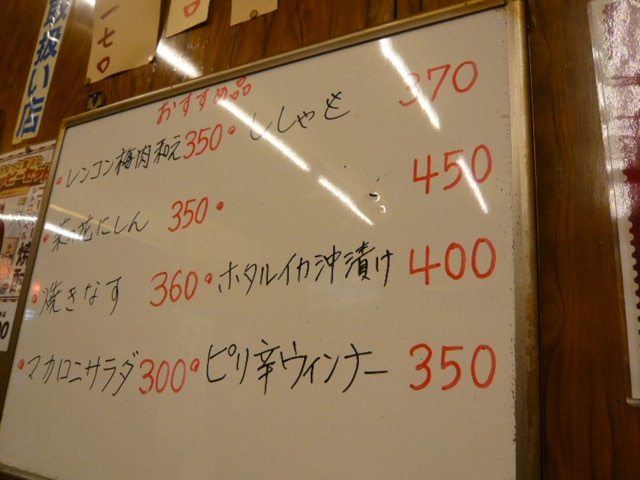 取扱い店
一七〇
おすすめ品
・レンコン梅肉和え 350
・ししゃも 370
・菜の花にしん 350
・ 450
・焼きなす 360
・ホタルイカ沖漬け 400
・マカロニサラダ 300
・ピリ辛ウィンナー 350